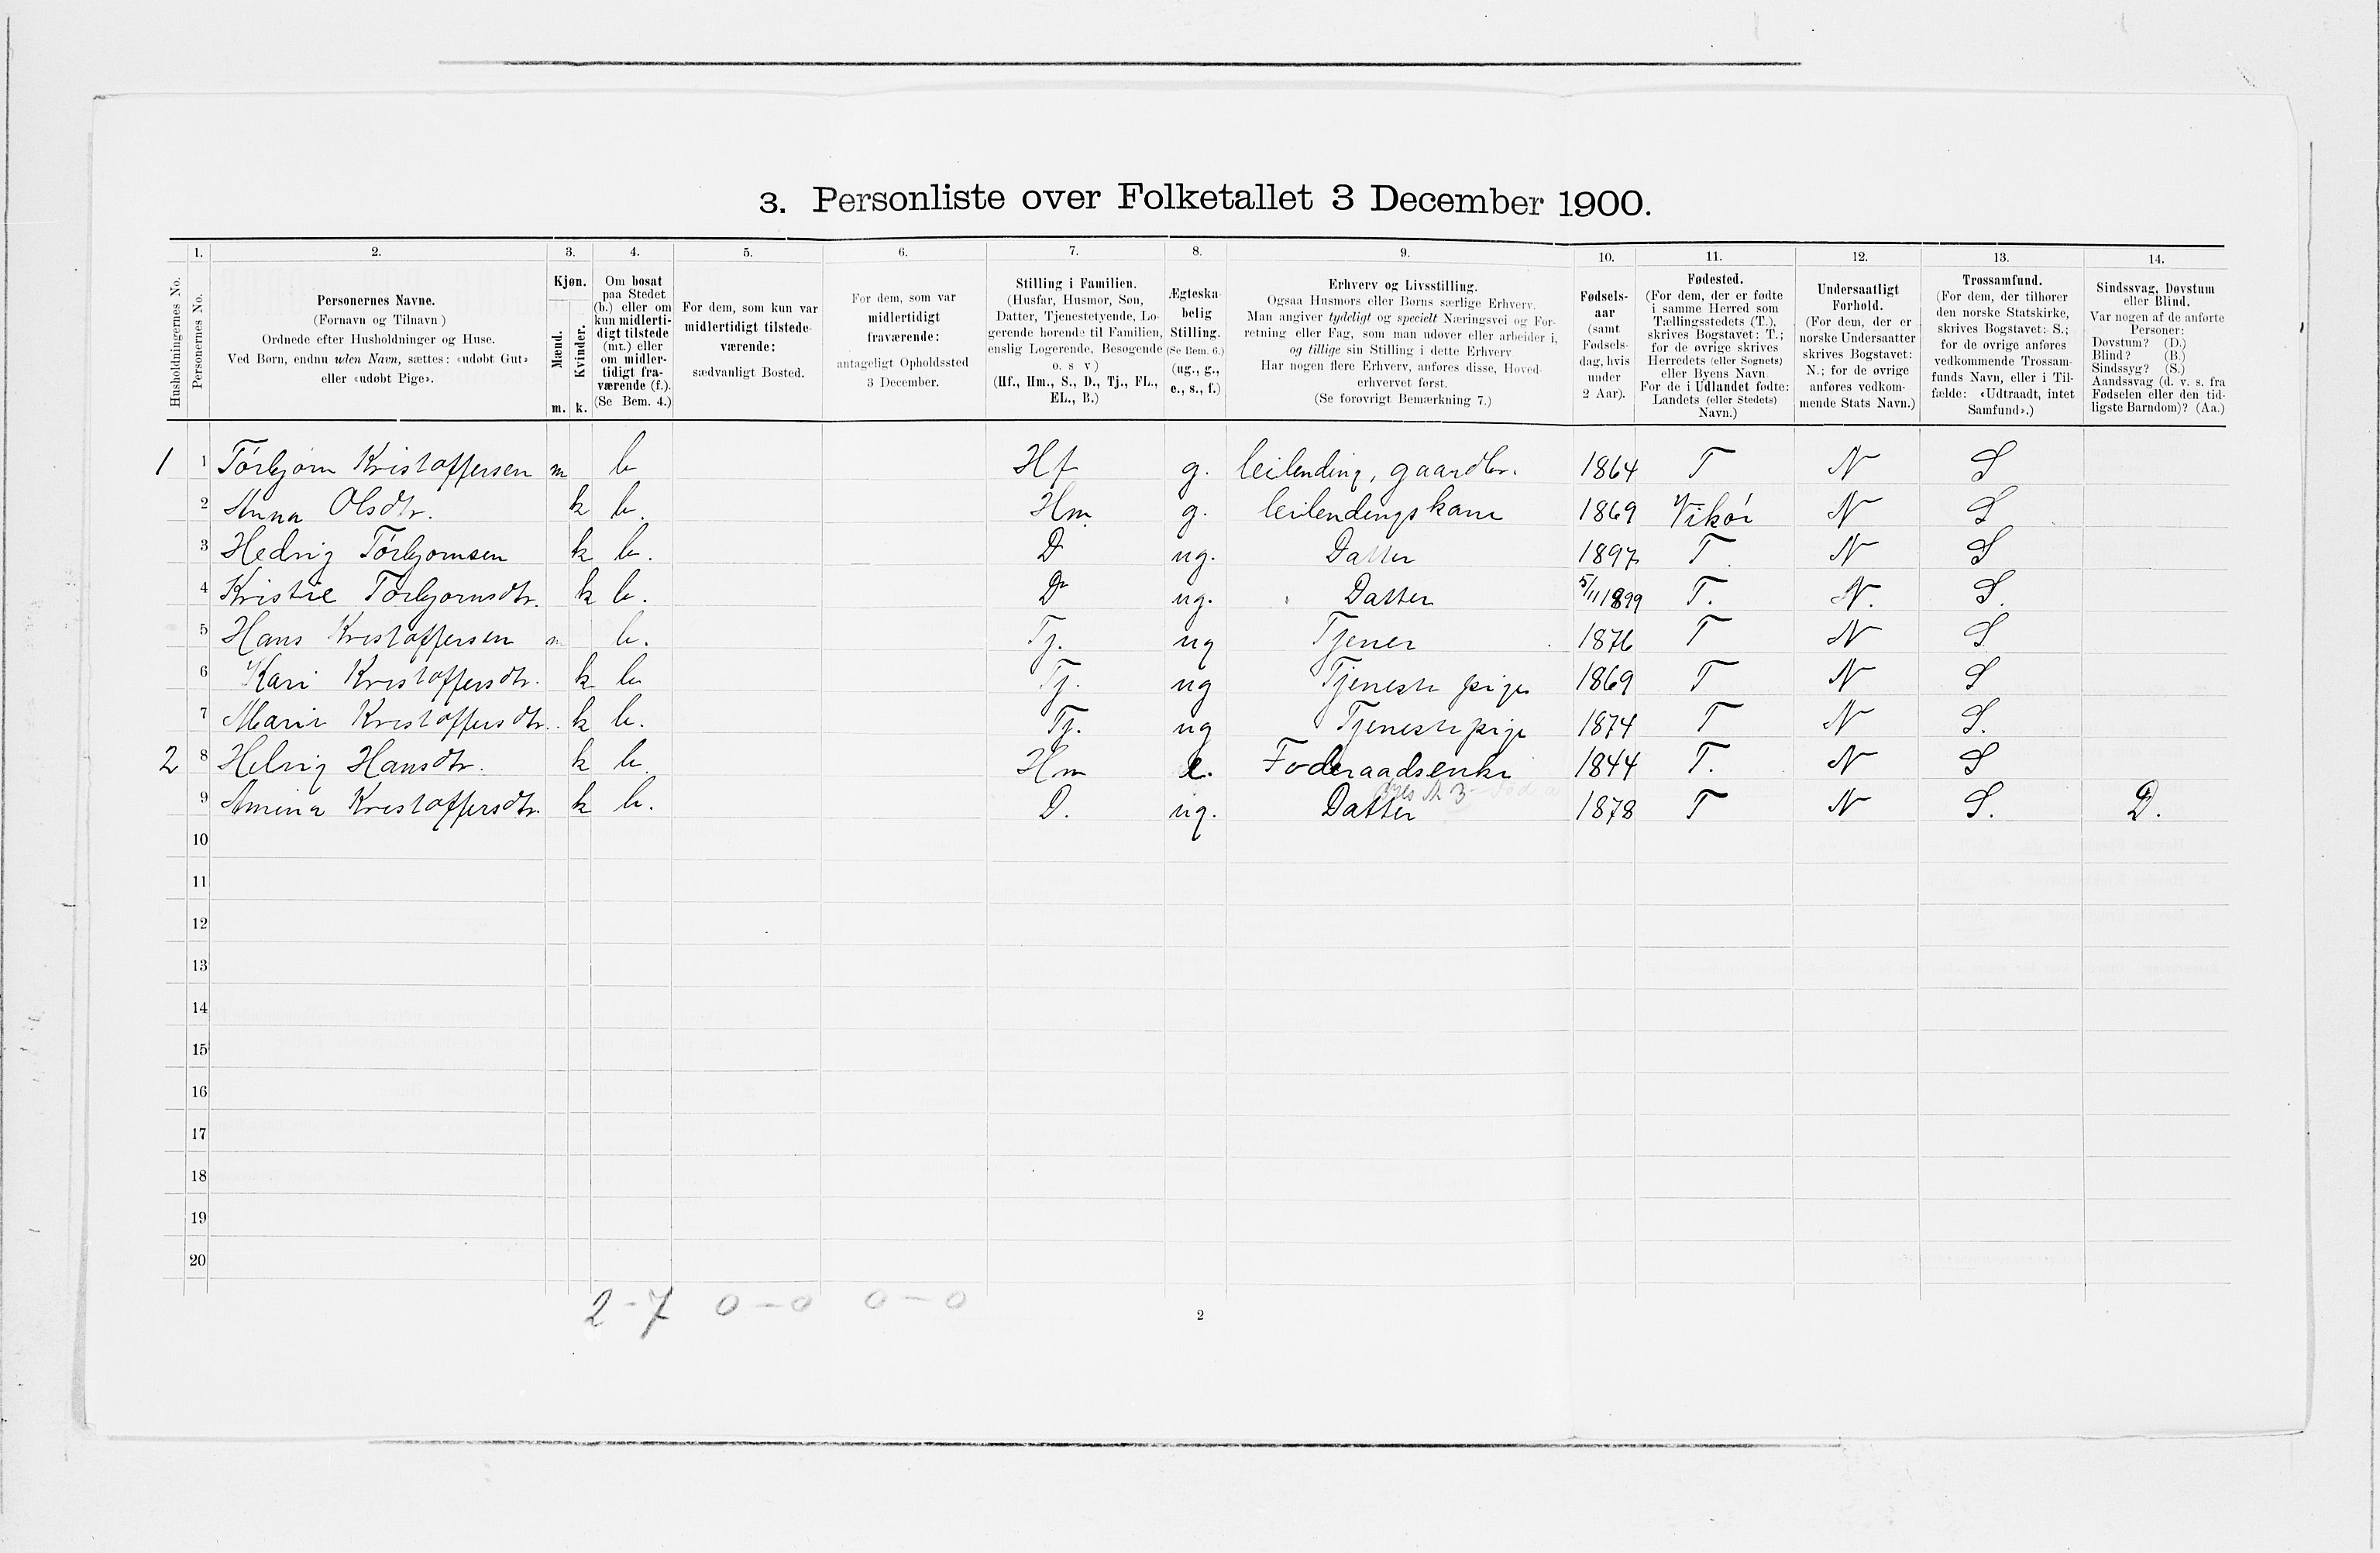 3. Personliste over Folketallet 3 December 1900.
1. 2. 3. 4. 5. 6. 7. 8. 9. 10. 11. 12. 13. 14.
Husholdningernes No.
Personernes No.
Personernes Navne.
(Fornavn og Tilnavn)
Ordnede efter Husholdninger og Huse.
Ved Børn, endnu uden Navn, sættes: «udøbt Gut»
eller «udøbt Pige».
Kjøn.
Mænd.
Kvinder.
m. k.
Om bosat
paa Stedet
(b.) eller om
kun midlerti-
digt tilstede
(mt.) eller
om midler-
tidigt fra-
værende (f.).
(Se Bem. 4.)
For dem, som kun var
midlertidigt tilstede-
værende:
sædvanligt Bosted.
For dem, som var
midlertidigt
fraværende:
antageligt Opholdssted
3 December.
Stilling i Familien.
(Husfar, Husmor, Søn,
Datter, Tjenestetyende, Lo-
gerende hørende til Familien,
enslig Logerende, Besøgende
o. s. v.)
(Hf., Hm., S., D., Tj., FL.,
EL., B.)
Ægteska-
belig
Stilling.
(Se Bem. 6.)
(ug., g.,
e., s., f.)
Erhverv og Livsstilling.
Ogsaa Husmors eller Børns særlige Erhverv.
Man angiver tydeligt og specielt Næringsvei og For-
retning eller Fag, som man udøver eller arbeider i,
og tillige sin Stilling i dette Erhverv.
Har nogen flere Erhverv, anføres disse, Hoved-
erhvervet først.
(Se forøvrigt Bemærkning 7.)
Fødsels-
aar
(samt
Fødsels-
dag, hvis
under
2 Aar).
Fødested.
(For dem, der er fødte
i samme Herred som
Tællingsstedets (T.),
skrives Bogstavet: T.;
for de øvrige skrives
Herredets (eller Sognets)
eller Byens Navn.
For de i Udlandet fødte:
Landets (eller Stedets)
Navn.)
Undersaatligt
Forhold.
(For dem, der er
norske Undersaatter
skrives Bogstavet:
N.; for de øvrige
anføres vedkom-
mende Stats Navn.)
Trossamfund.
(For dem, der tilhører
den norske Statskirke,
skrives Bogstavet: S.;
for de øvrige anføres
vedkommende Trossam-
funds Navn, eller i Til-
fælde: «Udtraadt, intet
Samfund».)
Sindssvag, Døvstum
eller Blind.
Var nogen af de anførte
Personer:
Døvstum? (D.)
Blind? (B.)
Sindssyg? (S.)
Aandssvag (d. v. s. fra
Fødselen eller den tid-
ligste Barndom)? (Aa.)
1 1 Torbjørn Kristoffersen m b Hf g. leilending, gaardbr. 1864 T N S
2 Anna Olsdtr. k b. Hm. g. leilendingskone 1869 Vikør N S
3 Hedvig Torbjornsen k b. D ug. Datter 1897 T. N S
4 Kristie Torbjornsdtr. k b. D ug. Datter 5/11 1899 T. N. S.
5 Hans Kristoffersen m b. Tj. ug Tjener 1876 T N S
6 Kari Kristoffersdtr. k b Tj. ug Tjeneste pige 1869 T N S
7 Marie Kristoffersdtr. k b. Tj. ug Tjenestepige 1874 T N S.
2 8 Helvig Hansdtr. k b. Hm e. Foderaadsenke 1844 T. N S
9 Amina Kristoffersdtr. k b. D. ug. Datter 1878 T N S. D.
10
11
12
13
14
15
16
17
18
19
20
2-7 0-0 0-0
2